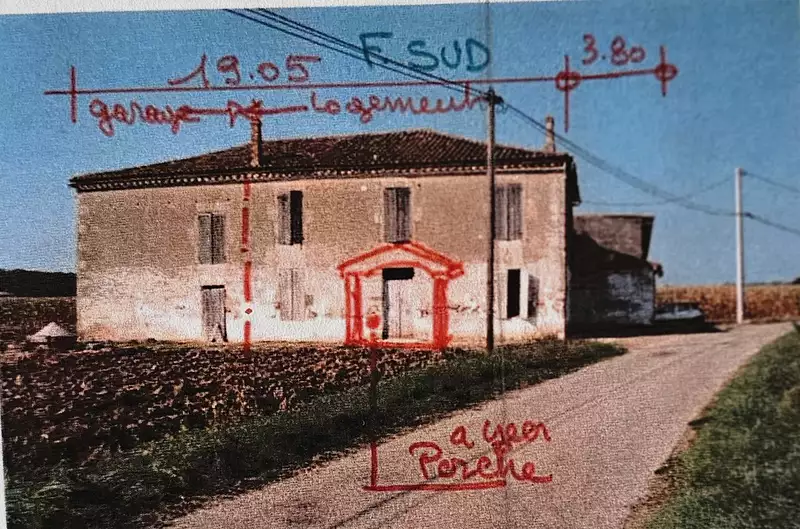 F. SUD
19.05
3.80
garage logement
a creer
Porche